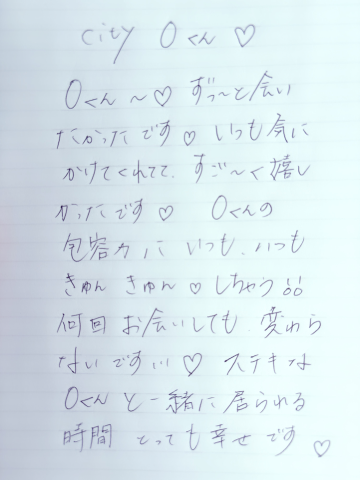 city Oくん ♡
Oくん 〜♡ ずっ〜と会い
たかったです♡ いつも気に
かけてくれてて、すご〜く嬉し
かったです♡ Oくんの
包容力に いつも、いつも
きゅん きゅん ♡ しちゃう!!
何回 お会いしても、変わら
ないです!!! ♡ ステキな
Oくん と一緒に居られる
時間 とっても幸せです♡